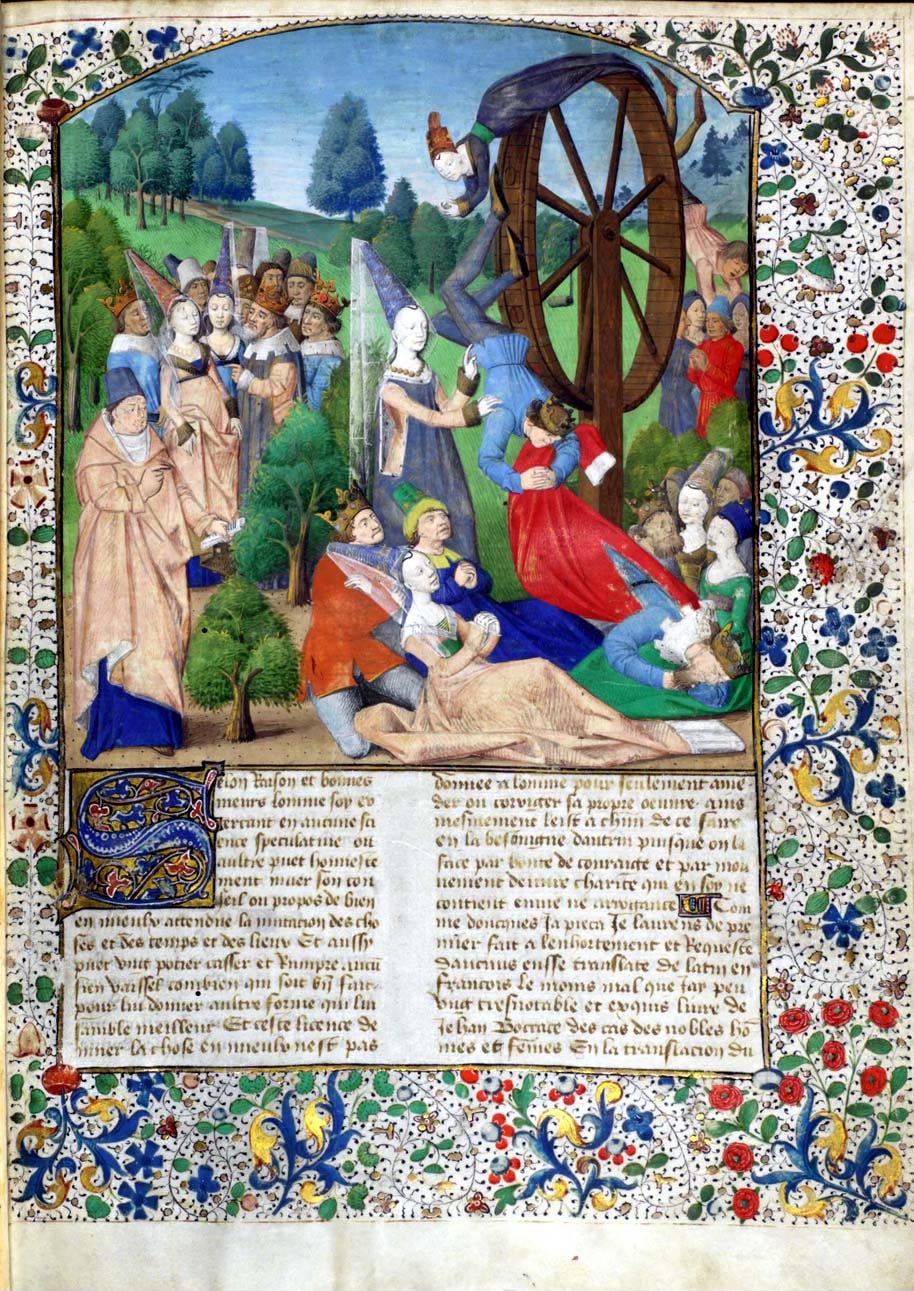 Selon Raison et bonnes
meurs lomme soy ex
ercant en aucune sci
ence speculative ou
aultre puet honneste
ment muer son con
seil ou propos de bien
en mieulx attendue la mutacion des cho
ses et des temps et des lieux Et aussy
puet ung potier casser et Rompre aucu
sien vaissel combien qui soit bn fait
pour lui donner aultre forme qui lui
samble meilleur Et ceste licence de
muer la chose en mieulx nest pas
donnee a lomme pour seulement ame
der ou corriger sa propre oeuvre ains
mesmement leist a chun de ce faire
en la besoingne dautrui puisque on la
face par bonte de couraige et par mou
vement de vraie charite qui en soy ne
contient envie ne arrogance Com
me doncques Ja pieca Je laurens de pre
mier fait a lenhortement et Requeste
daucuns eusse translate de latin en
francois le moins mal que Jay peu
ung tresnotable et exquis livre de
Jehan Boccace des cas des nobles ho
mes et femes En la translacion du